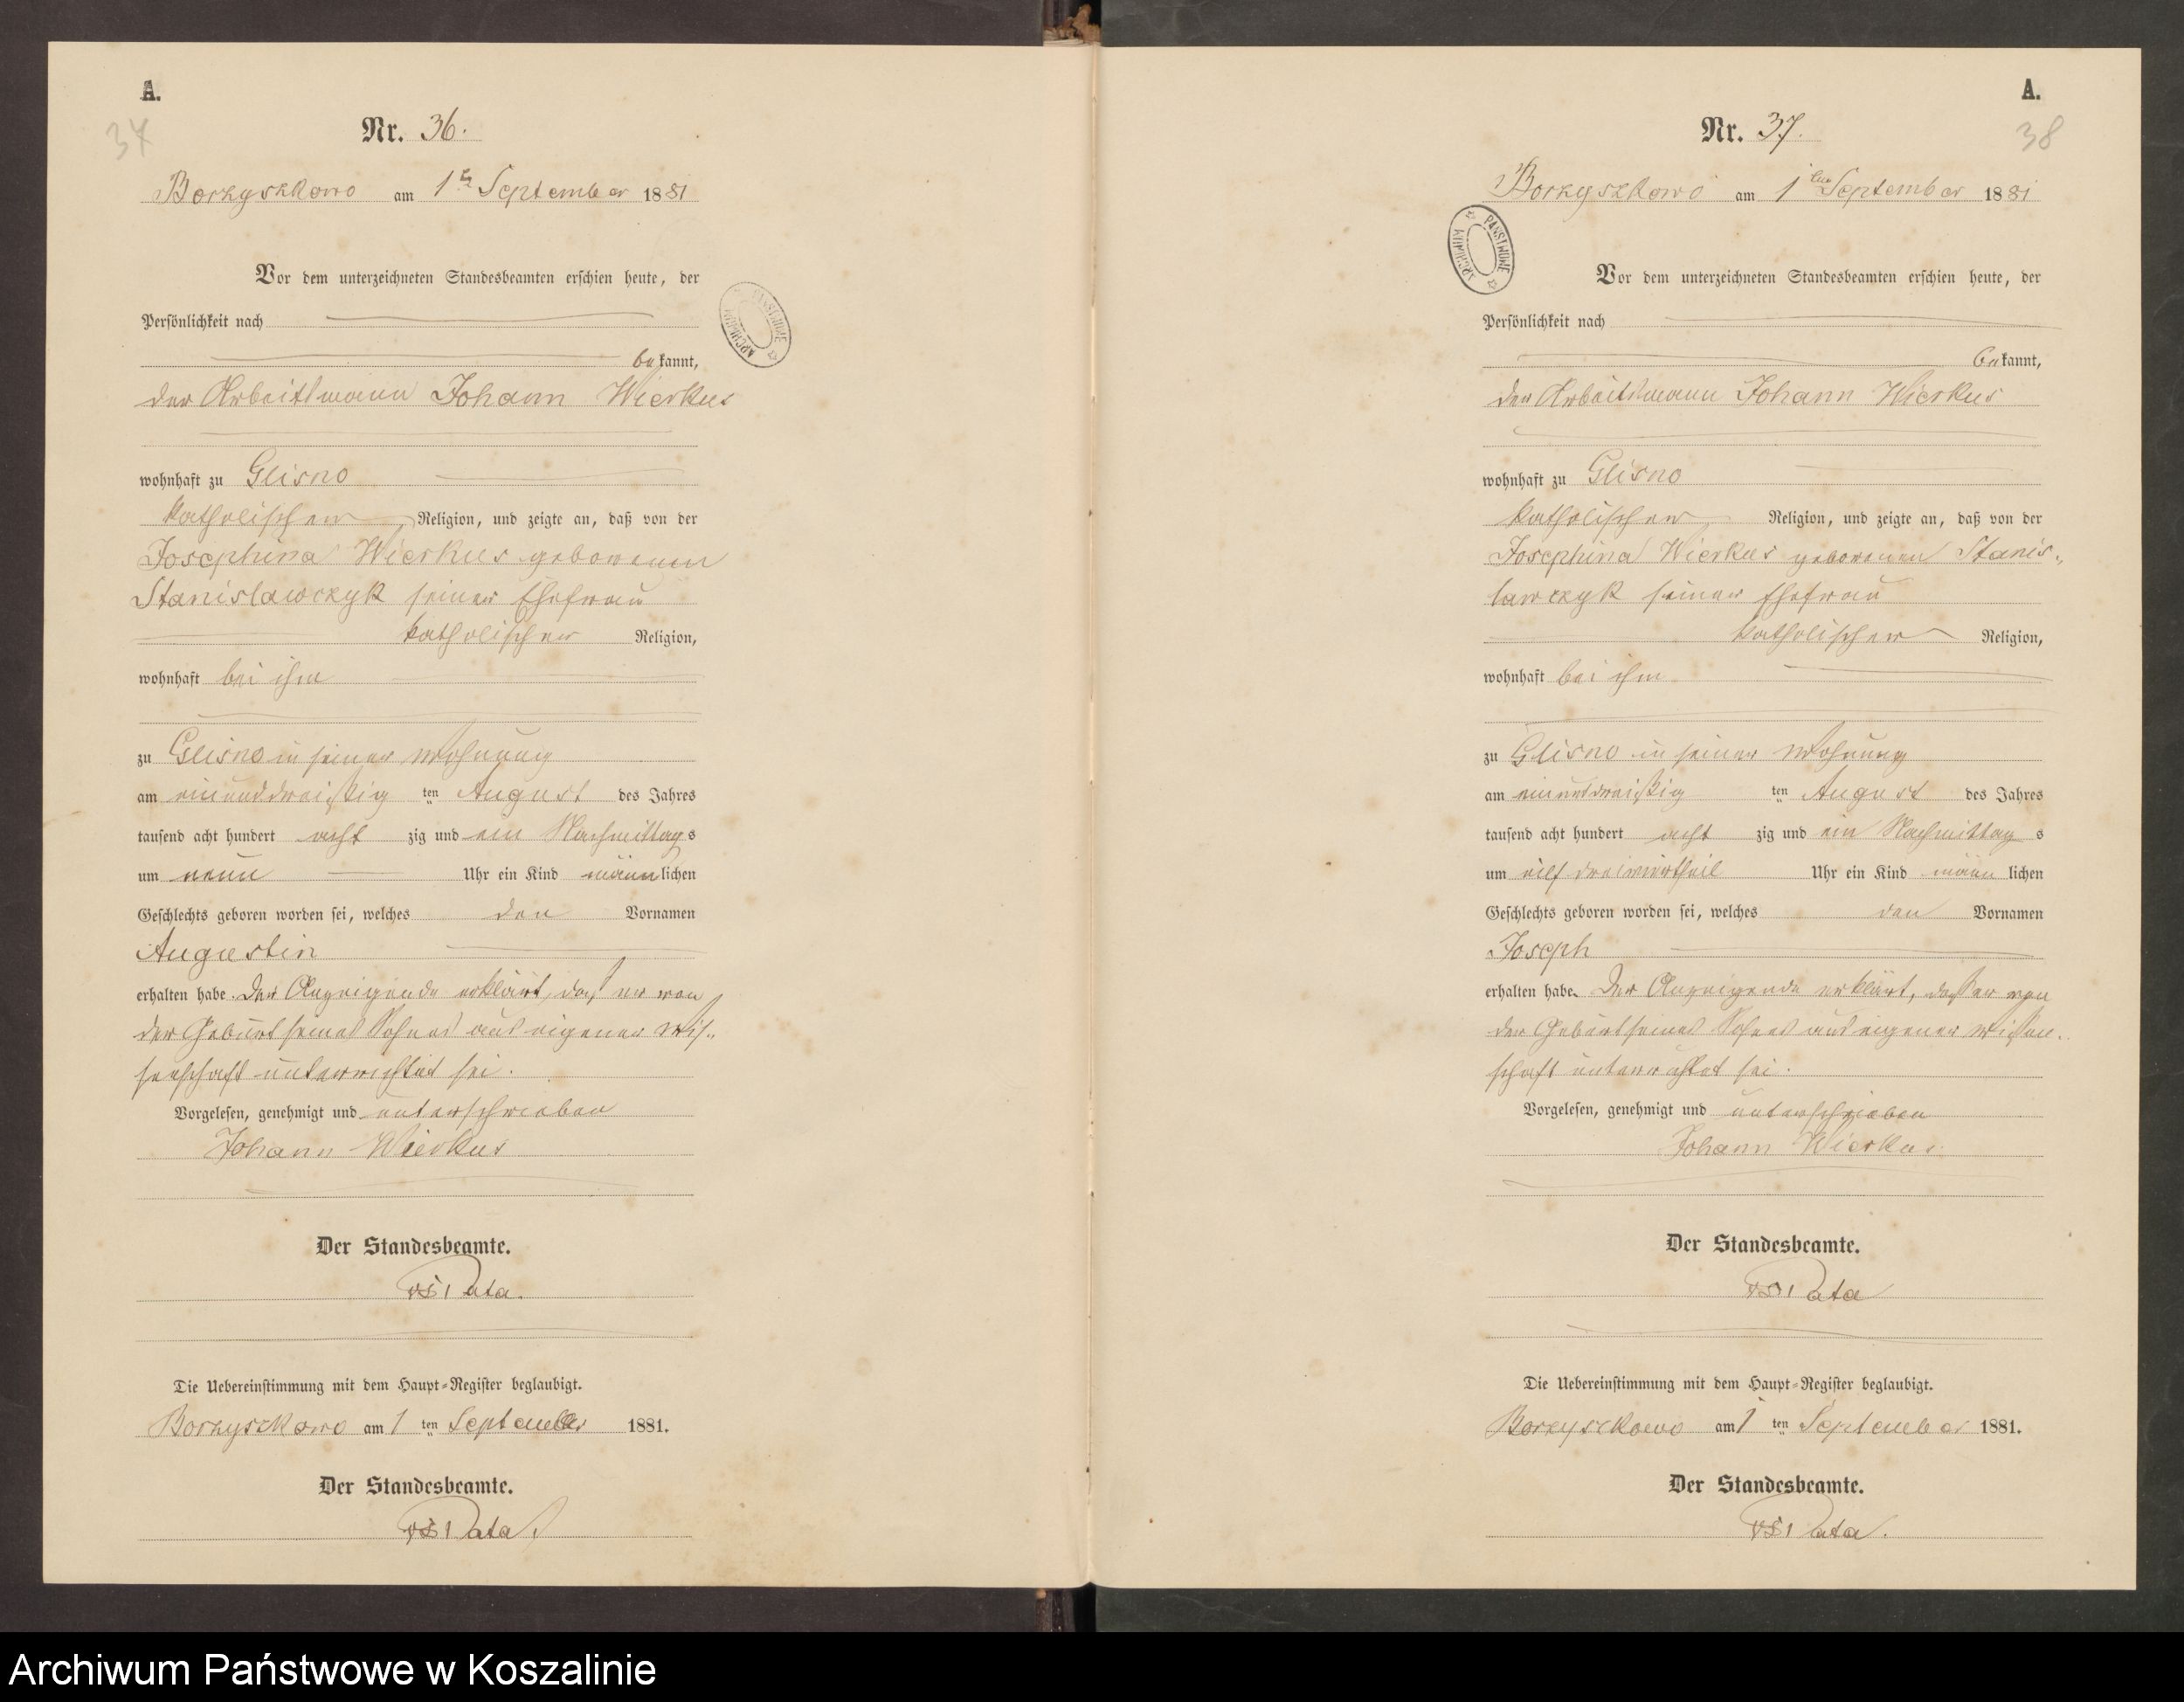 A.
37
Nr. 36.
Borzyszkowo am 1ten September 1881
Vor dem unterzeichneten Standesbeamten erschien heute, der
Persönlichkeit nach
bekannt,
der Arbeitsmann Johann Wierkus
wohnhaft zu Glisno
katholischer Religion, und zeigte an, daß von der
Josephina Wierkus geborenen
Stanislawczyk seiner Ehefrau
katholischer Religion,
wohnhaft bei ihm
zu Glisno in seiner Wohnung
am einunddreißig ten August des Jahres
tausend acht hundert acht zig und ein Nachmittags
um neun Uhr ein Kind männlichen
Geschlechts geboren worden sei, welches den Vornamen
Augustin
erhalten habe. Der Anzeigende erklärt, daß er von
der Geburt seines Sohnes aus eigener Wis-
senschaft unterrichtet sei.
Vorgelesen, genehmigt und unterschrieben
Johann Wierkus
Der Standesbeamte.
Pata.
Die Uebereinstimmung mit dem Haupt-Register beglaubigt.
Borzyszkowo am 1 ten September 1881.
Der Standesbeamte.
Pata.
ARCHIWUM PAŃSTWOWE
A.
38
Nr. 37.
Borzyszkowo am 1ten September 1881
ARCHIWUM PAŃSTWOWE
Vor dem unterzeichneten Standesbeamten erschien heute, der
Persönlichkeit nach
bekannt,
der Arbeitsmann Johann Wierkus
wohnhaft zu Glisno
katholischer Religion, und zeigte an, daß von der
Josephina Wierkus geborenen Stanis-
lawczyk seiner Ehefrau
katholischer Religion,
wohnhaft bei ihm
zu Glisno in seiner Wohnung
am einunddreißig ten August des Jahres
tausend acht hundert acht zig und ein Nachmittag s
um eilf dreiviertheil Uhr ein Kind männ lichen
Geschlechts geboren worden sei, welches den Vornamen
Joseph
erhalten habe. Der Anzeigende erklärt, daß er von
der Geburt seines Sohnes aus eigener Wissen-
schaft unterrichtet sei.
Vorgelesen, genehmigt und unterschrieben
Johann Wierkus
Der Standesbeamte.
Pata
Die Uebereinstimmung mit dem Haupt-Register beglaubigt.
Borzyszkowo am 1 ten September 1881.
Der Standesbeamte.
Pata.
Archiwum Państwowe w Koszalinie